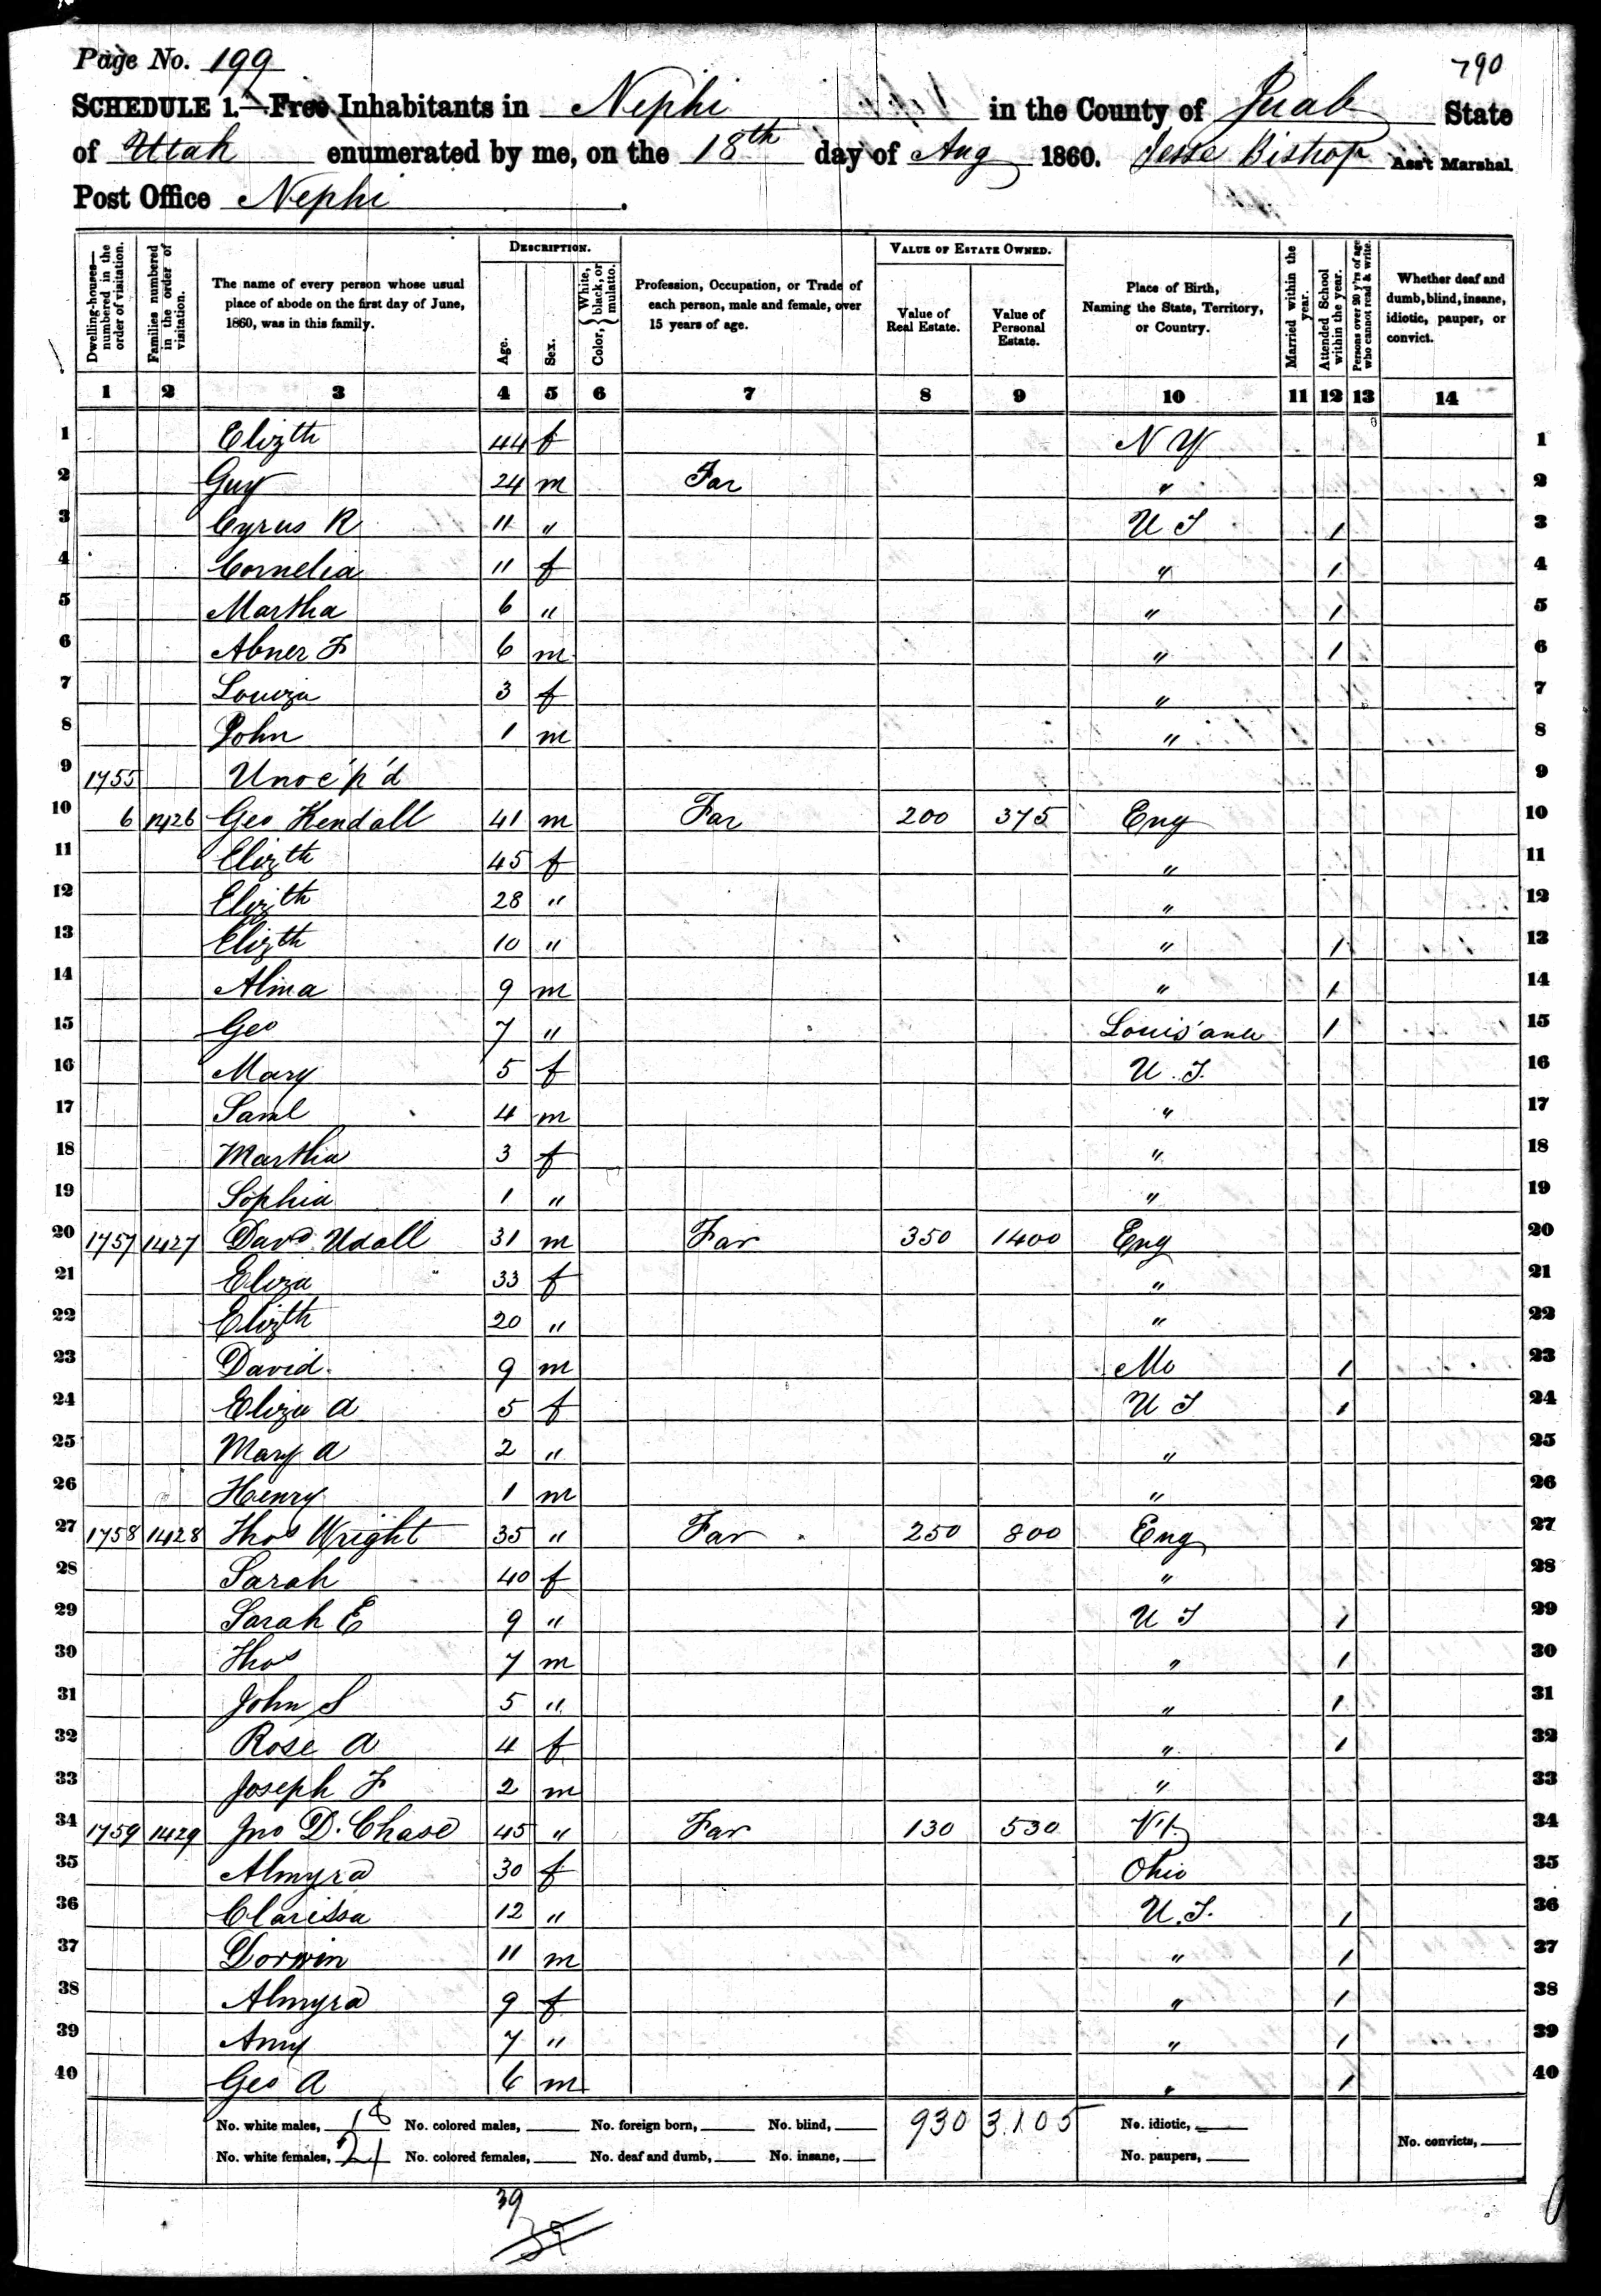 Page No. 199
790
SCHEDULE 1.—Free Inhabitants in Nephi in the County of Juab State
of Utah enumerated by me, on the 18th day of Aug 1860. Jesse Bishop Ass't Marshal.
Post Office Nephi.
Dwelling-houses—numbered in the order of visitation. Families numbered in the order of visitation. The name of every person whose usual place of abode on the first day of June, 1860, was in this family. DESCRIPTION. Age. Sex. Color, { White, black, or mulatto. Profession, Occupation, or Trade of each person, male and female, over 15 years of age. VALUE OF ESTATE OWNED. Value of Real Estate. Value of Personal Estate. Place of Birth, Naming the State, Territory, or Country. Married within the year. Attended School within the year. Persons over 20 y'rs of age who cannot read & write. Whether deaf and dumb, blind, insane, idiotic, pauper, or convict.
1 2 3 4 5 6 7 8 9 10 11 12 13 14
1 Elizth 44 f N Y 1
2 Guy 24 m Far " 2
3 Cyrus R 11 " U T / 3
4 Cornelia 11 f " / 4
5 Martha 6 " " / 5
6 Abner F 6 m " / 6
7 Louiza 3 f " 7
8 John 1 m " 8
9 1755 Unoc'p'd 9
10 6 1426 Geo Kendall 41 m Far 200 375 Eng 10
11 Elizth 45 f " 11
12 Elizth 28 " " 12
13 Elizth 10 " " / 13
14 Alma 9 m " / 14
15 Geo 7 " Louis'ana / 15
16 Mary 5 f U. T. 16
17 Saml 4 m " 17
18 Martha 3 f " 18
19 Sophia 1 " " 19
20 1757 1427 Davd Udall 31 m Far 350 1400 Eng 20
21 Eliza 33 f " 21
22 Elizth 20 " " 22
23 David 9 m Mo / 23
24 Eliza A 5 f U T / 24
25 Mary A 2 " " 25
26 Henry 1 m " 26
27 1758 1428 Thos Wright 35 " Far 250 800 Eng 27
28 Sarah 40 f " 28
29 Sarah E 9 " U T / 29
30 Thos 7 m " / 30
31 John S 5 " " / 31
32 Rose A 4 f " / 32
33 Joseph F 2 m " 33
34 1759 1429 Jno D. Chase 45 " Far 130 530 Vt. 34
35 Almyra 30 f Ohio 35
36 Clarissa 12 " U. T. / 36
37 Dorwin 11 m " / 37
38 Almyra 9 f " / 38
39 Amy 7 " " / 39
40 Geo A 6 m " / 40
No. white males, 18 No. colored males, No. foreign born, No. blind, 930 3.105 No. idiotic,
No. white females, 21 No. colored females, No. deaf and dumb, No. insane, No. paupers, No. convicts,
39
39